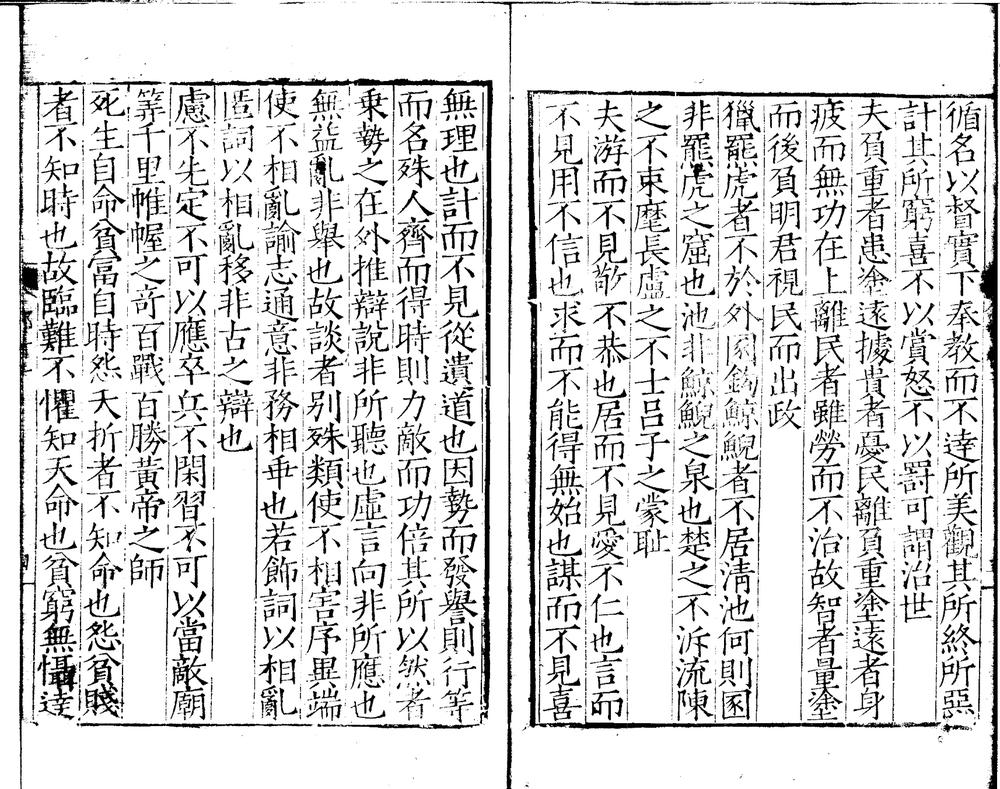 循名以督實下奉教而不達所美觀其所終所惡
計其所窮喜不以賞怒不以罰可謂治世
夫負重者患塗遠據貴者憂民離負重塗遠者身
疲而無功在上離民者雖勞而不治故智者量塗
而後負明君視民而出政
獵羆虎者不於外圂鈎鯨鯢者不居清池何則圂
非羆虎之窟也池非鯨鯢之泉也楚之不泝流陳
之不束麾長盧之不士吕子之蒙耻
夫游而不見敬不恭也居而不見愛不仁也言而
不見用不信也求而不能得無始也謀而不見喜
無理也計而不見從遺道也因勢而發譽則行等
而名殊人齊而得時則力敵而功倍其所以然者
乗勢之在外推辯說非所聽也虛言向非所應也
無益亂非舉也故談者别殊類使不相害序異端
使不相亂諭志通意非務相乖也若飾詞以相亂
匿詞以相亂移非古之辯也
慮不先定不可以應卒兵不閑習不可以當敵廟
筭千里帷幄之竒百戰百勝黃帝之師
死生自命貧富自時怨夭折者不知命也怨貧賤
者不知時也故臨難不懼知天命也貧窮無懾達